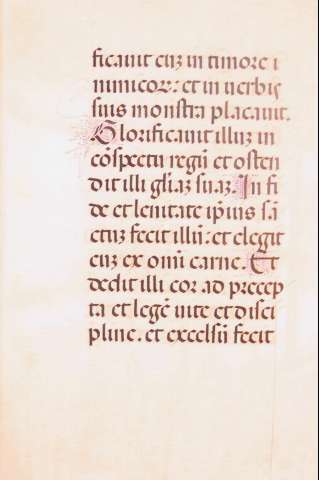 ficauit euȝ in timore i
nimicoꝝ: et in uerbis
suis monstra placauit.
Glorificauit illuȝ in
cōspectu regū et osten
dit illi gl̄iaȝ suaȝ. In fi
de et lenitate ip̄ius sā
ctuȝ fecit illū: et elegit
euȝ ex omī carne. Et
dedit illi cor ad precep
ta et legē uite et disci
pline. et excelsū fecit